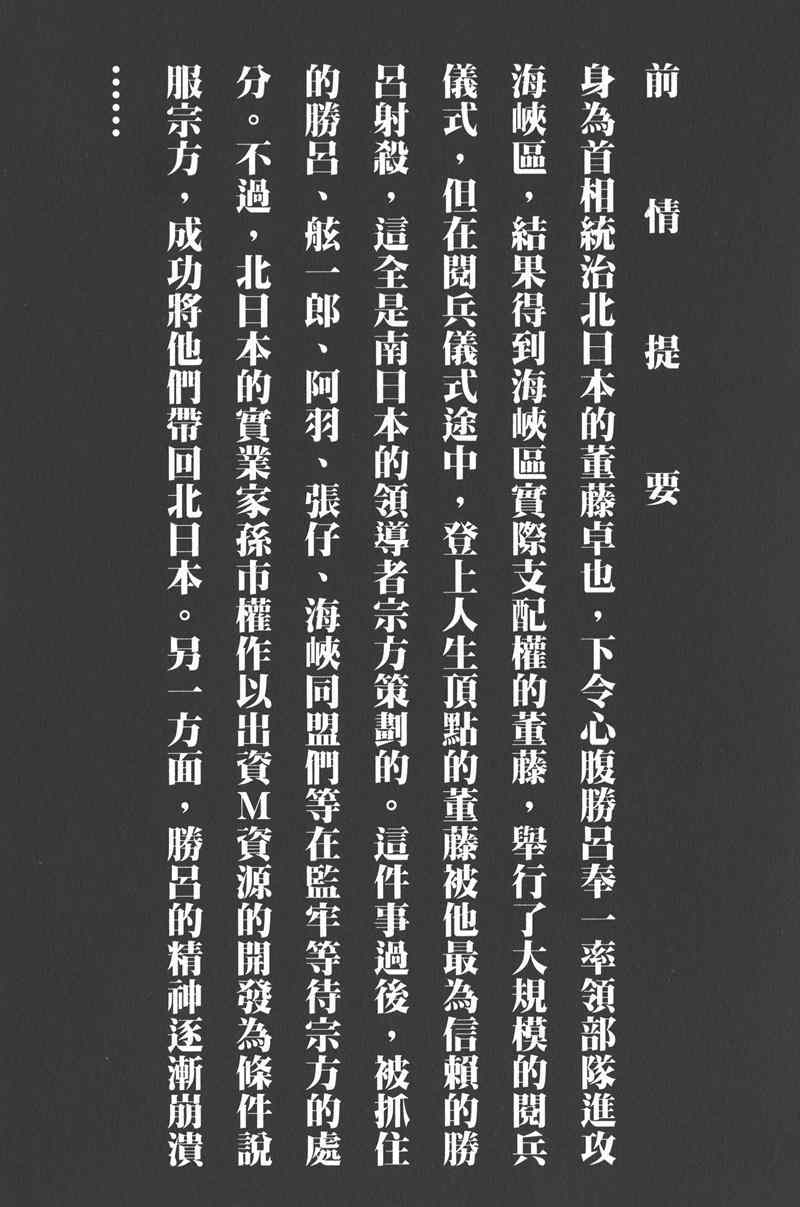 前情提要
身為首相統治北日本的董藤卓也，下令心腹勝呂奉一率領部隊進攻
海峽區，結果得到海峽區實際支配權的董藤，舉行了大規模的閱兵
儀式，但在閱兵儀式途中，登上人生頂點的董藤被他最為信賴的勝
呂射殺，這全是南日本的領導者宗方策劃的。這件事過後，被抓住
的勝呂、舷一郎、阿羽、張仔、海峽同盟們等在監牢等待宗方的處
分。不過，北日本的實業家孫市權作以出資M資源的開發為條件說
服宗方，成功將他們帶回北日本。另一方面，勝呂的精神逐漸崩潰
……